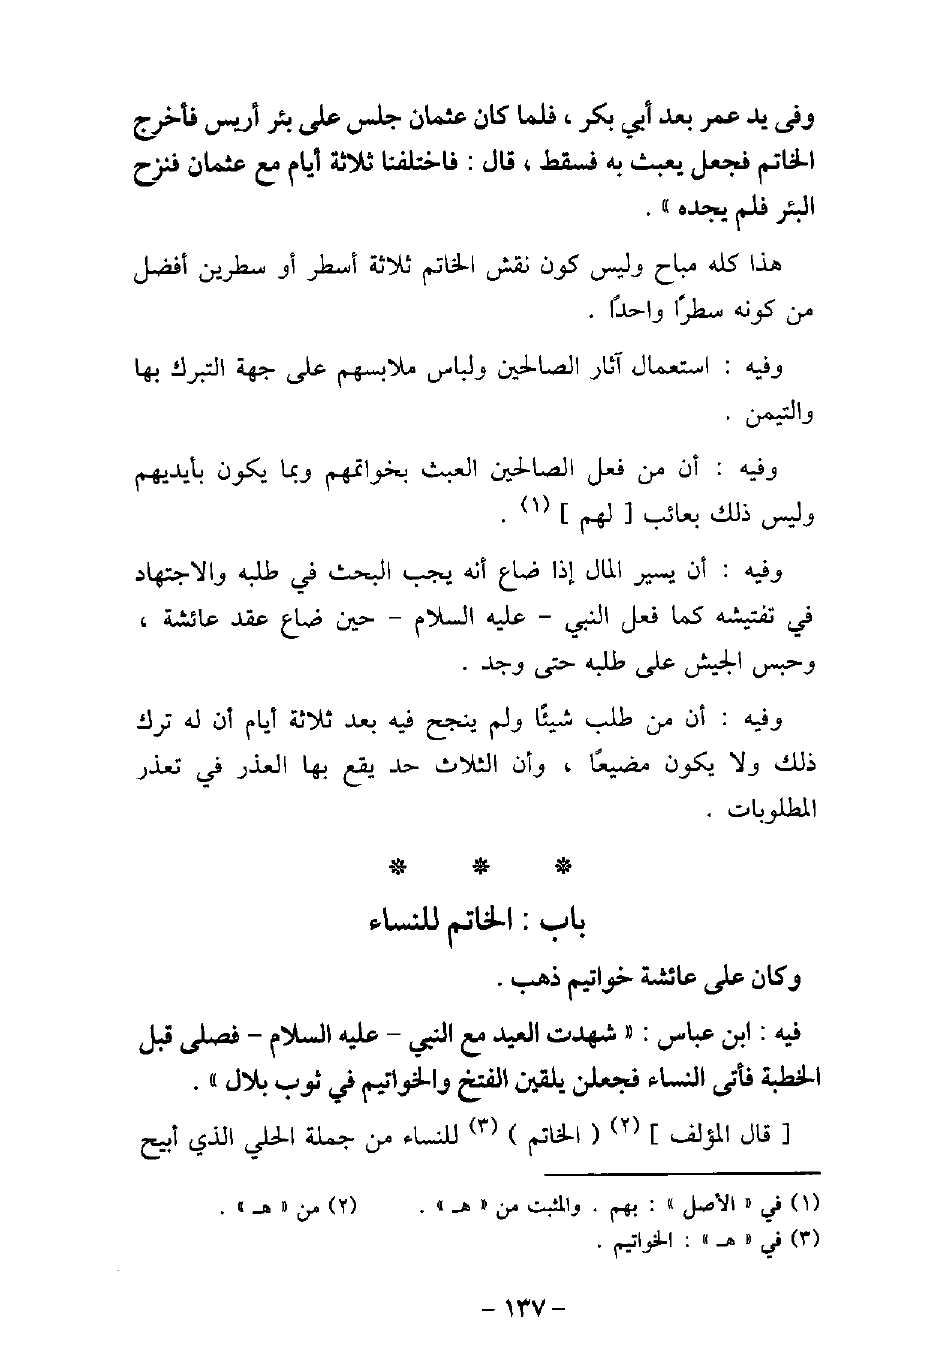 وفى يد عمر بعد أبي بكر ، فلما كان عثمان جلس على بئر أريس فأخرج
الخاتم فجعل يعبث به فسقط ، قال : فاختلفنا ثلاثة أيام مع عثمان فنزح
البئر فلم يجده » .
هذا كله مباح وليس كون نقش الخاتم ثلاثة أسطر أو سطرين أفضل
من كونه سطرًا واحدًا .
وفيه : استعمال آثار الصالحين ولباس ملابسهم على جهة التبرك بها
والتيمن .
وفيه : أن من فعل الصالحين العبث بخواتمهم وبما يكون بأيديهم
وليس ذلك بعائب [ لهم ] (١) .
وفيه : أن يسير المال إذا ضاع أنه يجب البحث في طلبه والاجتهاد
في تفتيشه كما فعل النبي - عليه السلام - حين ضاع عقد عائشة ،
وحبس الجيش على طلبه حتى وجد .
وفيه : أن من طلب شيئًا ولم ينجح فيه بعد ثلاثة أيام أن له ترك
ذلك ولا يكون مضيعًا ، وأن الثلاث حد يقع بها العذر في تعذر
المطلوبات .
* * *
باب : الخاتم للنساء
وكان على عائشة خواتيم ذهب .
فيه : ابن عباس : « شهدت العيد مع النبي - عليه السلام - فصلى قبل
الخطبة فأتى النساء فجعلن يلقين الفتخ والخواتيم في ثوب بلال » .
[ قال المؤلف ] (٢) ( الخاتم ) (٣) للنساء من جملة الحلي الذي أبيح
(١) في « الأصل » : بهم . والمثبت من « هـ » . (٢) من « هـ » .
(٣) في « هـ » : الخواتيم .
- ١٣٧ -